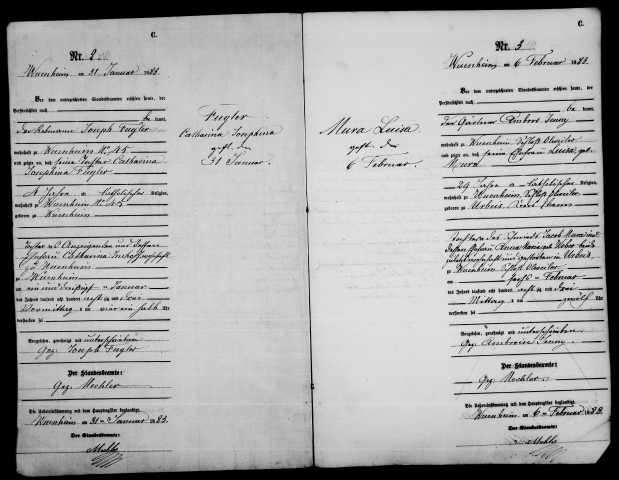 C.
Nr. 2
Wuenheim am 31 Januar 1883.
Vor dem unterzeichneten Standesbeamten erschien heute, der
Persönlichkeit nach
be kannt,
Der Ackerer Joseph Fugler
wohnhaft zu Wuenheim Nr. 45
und zeigte an, daß seine Tochter Catharina
Josephina Fugler
4 Jahre alt, katholischer Religion,
wohnhaft zu Wuenheim Nr. 45
geboren zu Wuenheim
Tochter des Anzeigenden und dessen
Ehefrau Catharina
zu Wuenheim
zu Wuenheim
am ein und dreißigsten Januar
des Jahres tausend acht hundert achtzig und drei
Vormittags um Uhr
verstorben sei
Vorgelesen, genehmigt und unterschrieben
Gez. Joseph Fugler
Der Standesbeamte:
Gez. Mechler
Die Uebereinstimmung mit dem Hauptregister beglaubigt.
Wuenheim am 31 ten Januar 1883.
Der Standesbeamte:
Fugler
Catharina Josephina
gest. den
31 Januar.
Mura Luisa
gest. den
6 Februar.
C.
Nr. 3
Wuenheim am 6 Februar 1883.
Vor dem unterzeichneten Standesbeamten erschien heute, der
Persönlichkeit nach
be kannt,
Der Gärtner Jenny
wohnhaft zu Wuenheim, Schloß Ollweiler
und zeigte an, daß seine Ehefrau Luisa, geb.
Mura
29 Jahre alt, katholischer Religion,
wohnhaft zu Wuenheim, Schloß Ollweiler
geboren zu Urbeis
Tochter des Jacob Mura und
dessen Ehefrau Anna Maria geb. Weber beide
zuletzt wohnhaft und gestorben in Urbeis,
zu Wuenheim Schloß Ollweiler
am sechsten Februar
des Jahres tausend acht hundert achtzig und drei
Mittags um zwölf Uhr
verstorben sei
Vorgelesen, genehmigt und unterschrieben
Gez. Ambroise Jenny
Der Standesbeamte:
Gez. Mechler
Die Uebereinstimmung mit dem Hauptregister beglaubigt.
Wuenheim am 6 ten Februar 1883.
Der Standesbeamte: